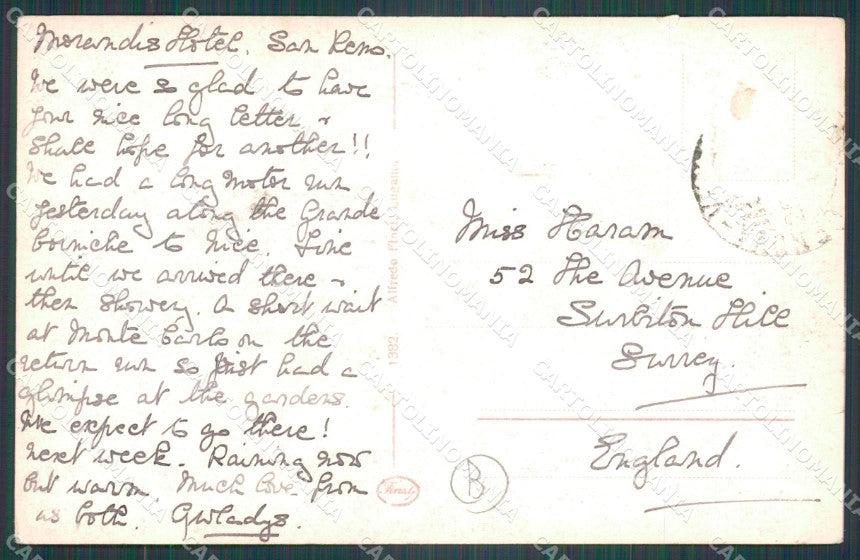 Morandis Hotel. San Remo.
We were so glad to have
your nice long letter &
shall hope for another!!
We had a long motor run
yesterday along the Grande
Corniche to Nice. Fine
until we arrived there &
then showery. A short wait
at Monte Carlo on the
return run so just had a
glimpse at the gardens.
We expect to go there!
next week. Raining now
but warm. Much love from
us both. Gwladys.
1382. Alfredo
Miss Haram
52 The Avenue
Surbiton Hill
Surrey.
England.
B
CARTOLINOMANIA